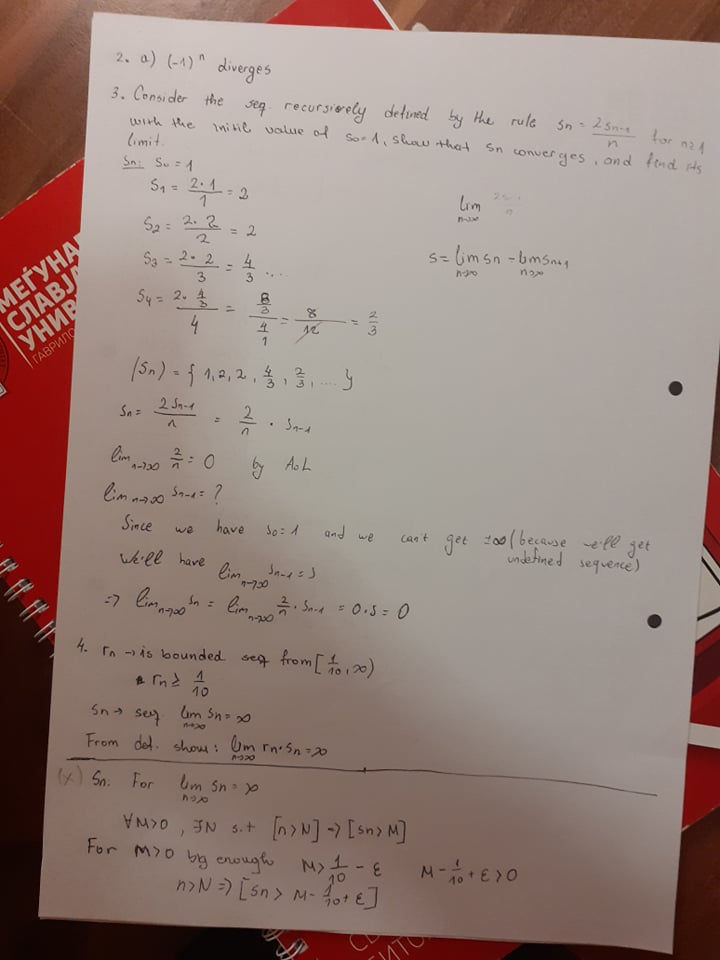 2. a) (-1)^n diverges
3. Consider the seq. recursively defined by the rule Sn = 2Sn-1/n for n≥1
with the initil value of S0=1, show that Sn converges, and find its
limit.
Sn: S0 = 1
S1 = 2·1/1 = 2
S2 = 2·2/2 = 2
S3 = 2·2/3 = 4/3 ....
S4 = 2·4/3 / 4 = 8/3 / 4/1 = 8/12 = 2/3
lim n→∞
S = lim n→∞ Sn = lim n→∞ Sn+1
(Sn) = { 1, 2, 2, 4/3, 2/3, .... }
Sn = 2Sn-1/n = 2/n · Sn-1
lim n→∞ 2/n = 0 by AoL
lim n→∞ Sn-1 = ?
Since we have S0=1 and we can't get ±∞ (because we'll get
undefined sequence)
We'll have lim n→∞ Sn-1 = S
=> lim n→∞ Sn = lim n→∞ 2/n · Sn-1 = 0·S = 0
4. rn → is bounded seq from [1/10, ∞)
rn ≥ 1/10
Sn → seq. lim n→∞ Sn = ∞
From def. show: lim n→∞ rn·Sn = ∞
(x) Sn: For lim n→∞ Sn = ∞
∀M>0, ∃N s.t [n>N] => [Sn>M]
For M>0 big enough M > 1/10 - ε M - 1/10 + ε > 0
n>N => [Sn > M - 1/10 + ε]
МЕЃУНАР
СЛАВЈА
УНИВ
ГАВРИЛО